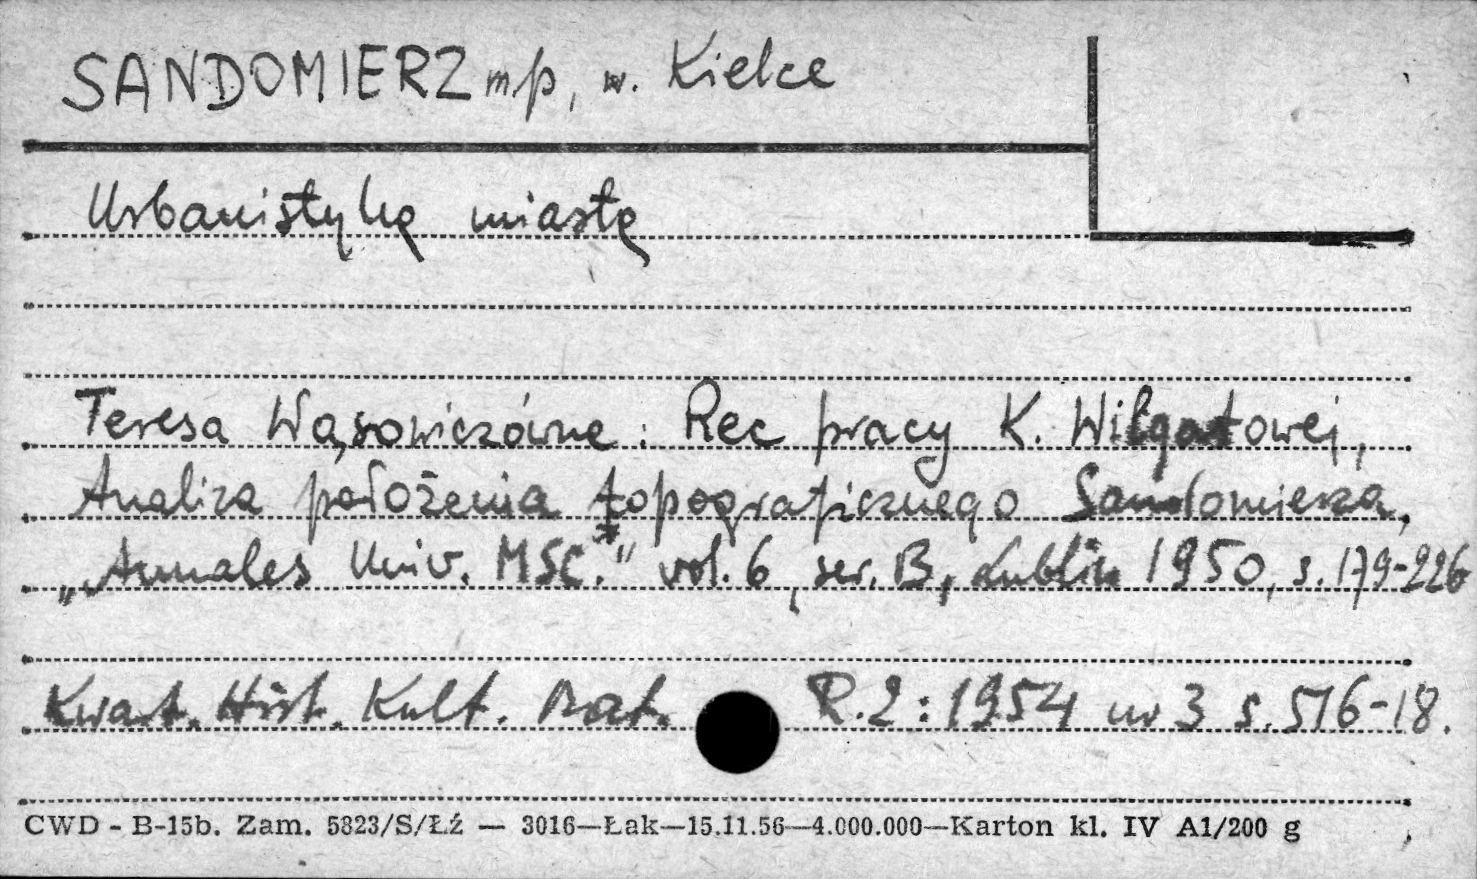 SANDOMIERZ m.p., w. Kielce
Urbanistyka miasta
Teresa Wąsowiczówna: Rec pracy K. Wilgatowej,
Analiza położenia topograficznego Sandomierza,
„Annales Univ. MSC." vol. 6, ser. B, Lublin 1950, s. 179-226
Kwart. Hist. Kult. Mat. R.2: 1954 nr 3 s. 516-18.
CWD - B-15b. Zam. 5823/S/Łź — 3016—Łak—15.11.56—4.000.000—Karton kl. IV A1/200 g